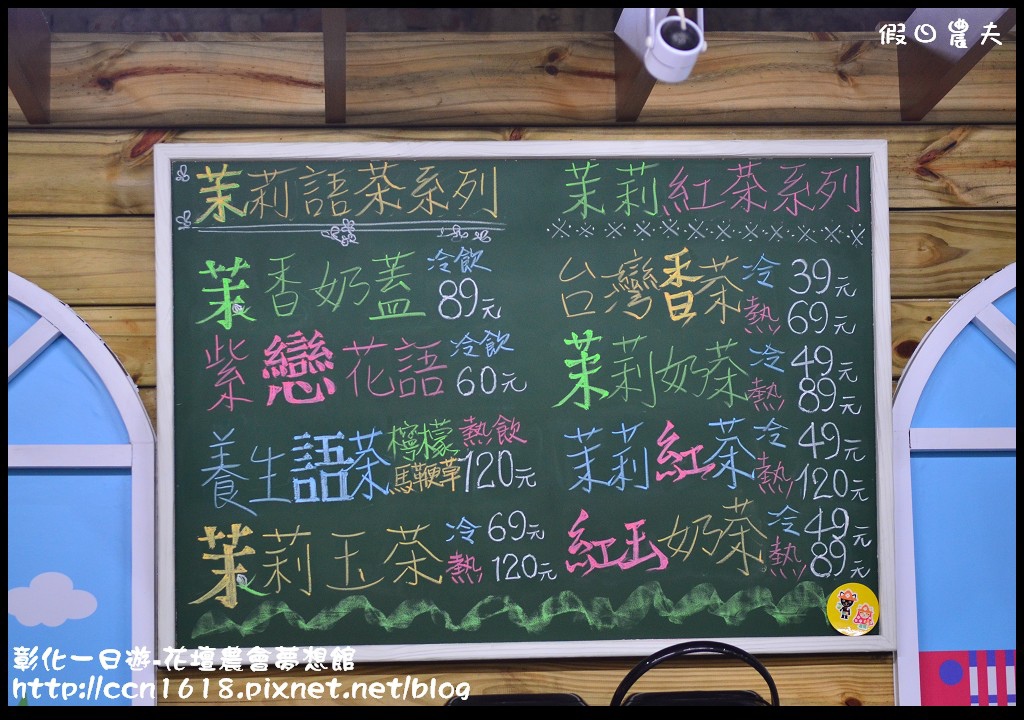 假日農夫
茉莉語茶系列
茉香奶蓋 冷飲 89元
紫戀花語 冷飲 60元
養生語茶 檸檬馬鞭草 熱飲 120元
茉莉玉茶 冷 69元
熱 120元
茉莉紅茶系列
台灣香茶 冷 39元
熱 69元
茉莉奶茶 冷 49元
熱 89元
茉莉紅茶 冷 49元
熱 120元
紅玉奶茶 冷 49元
熱 89元
彰化一日遊-花壇農會夢想館
http://ccn1618.pixnet.net/blog